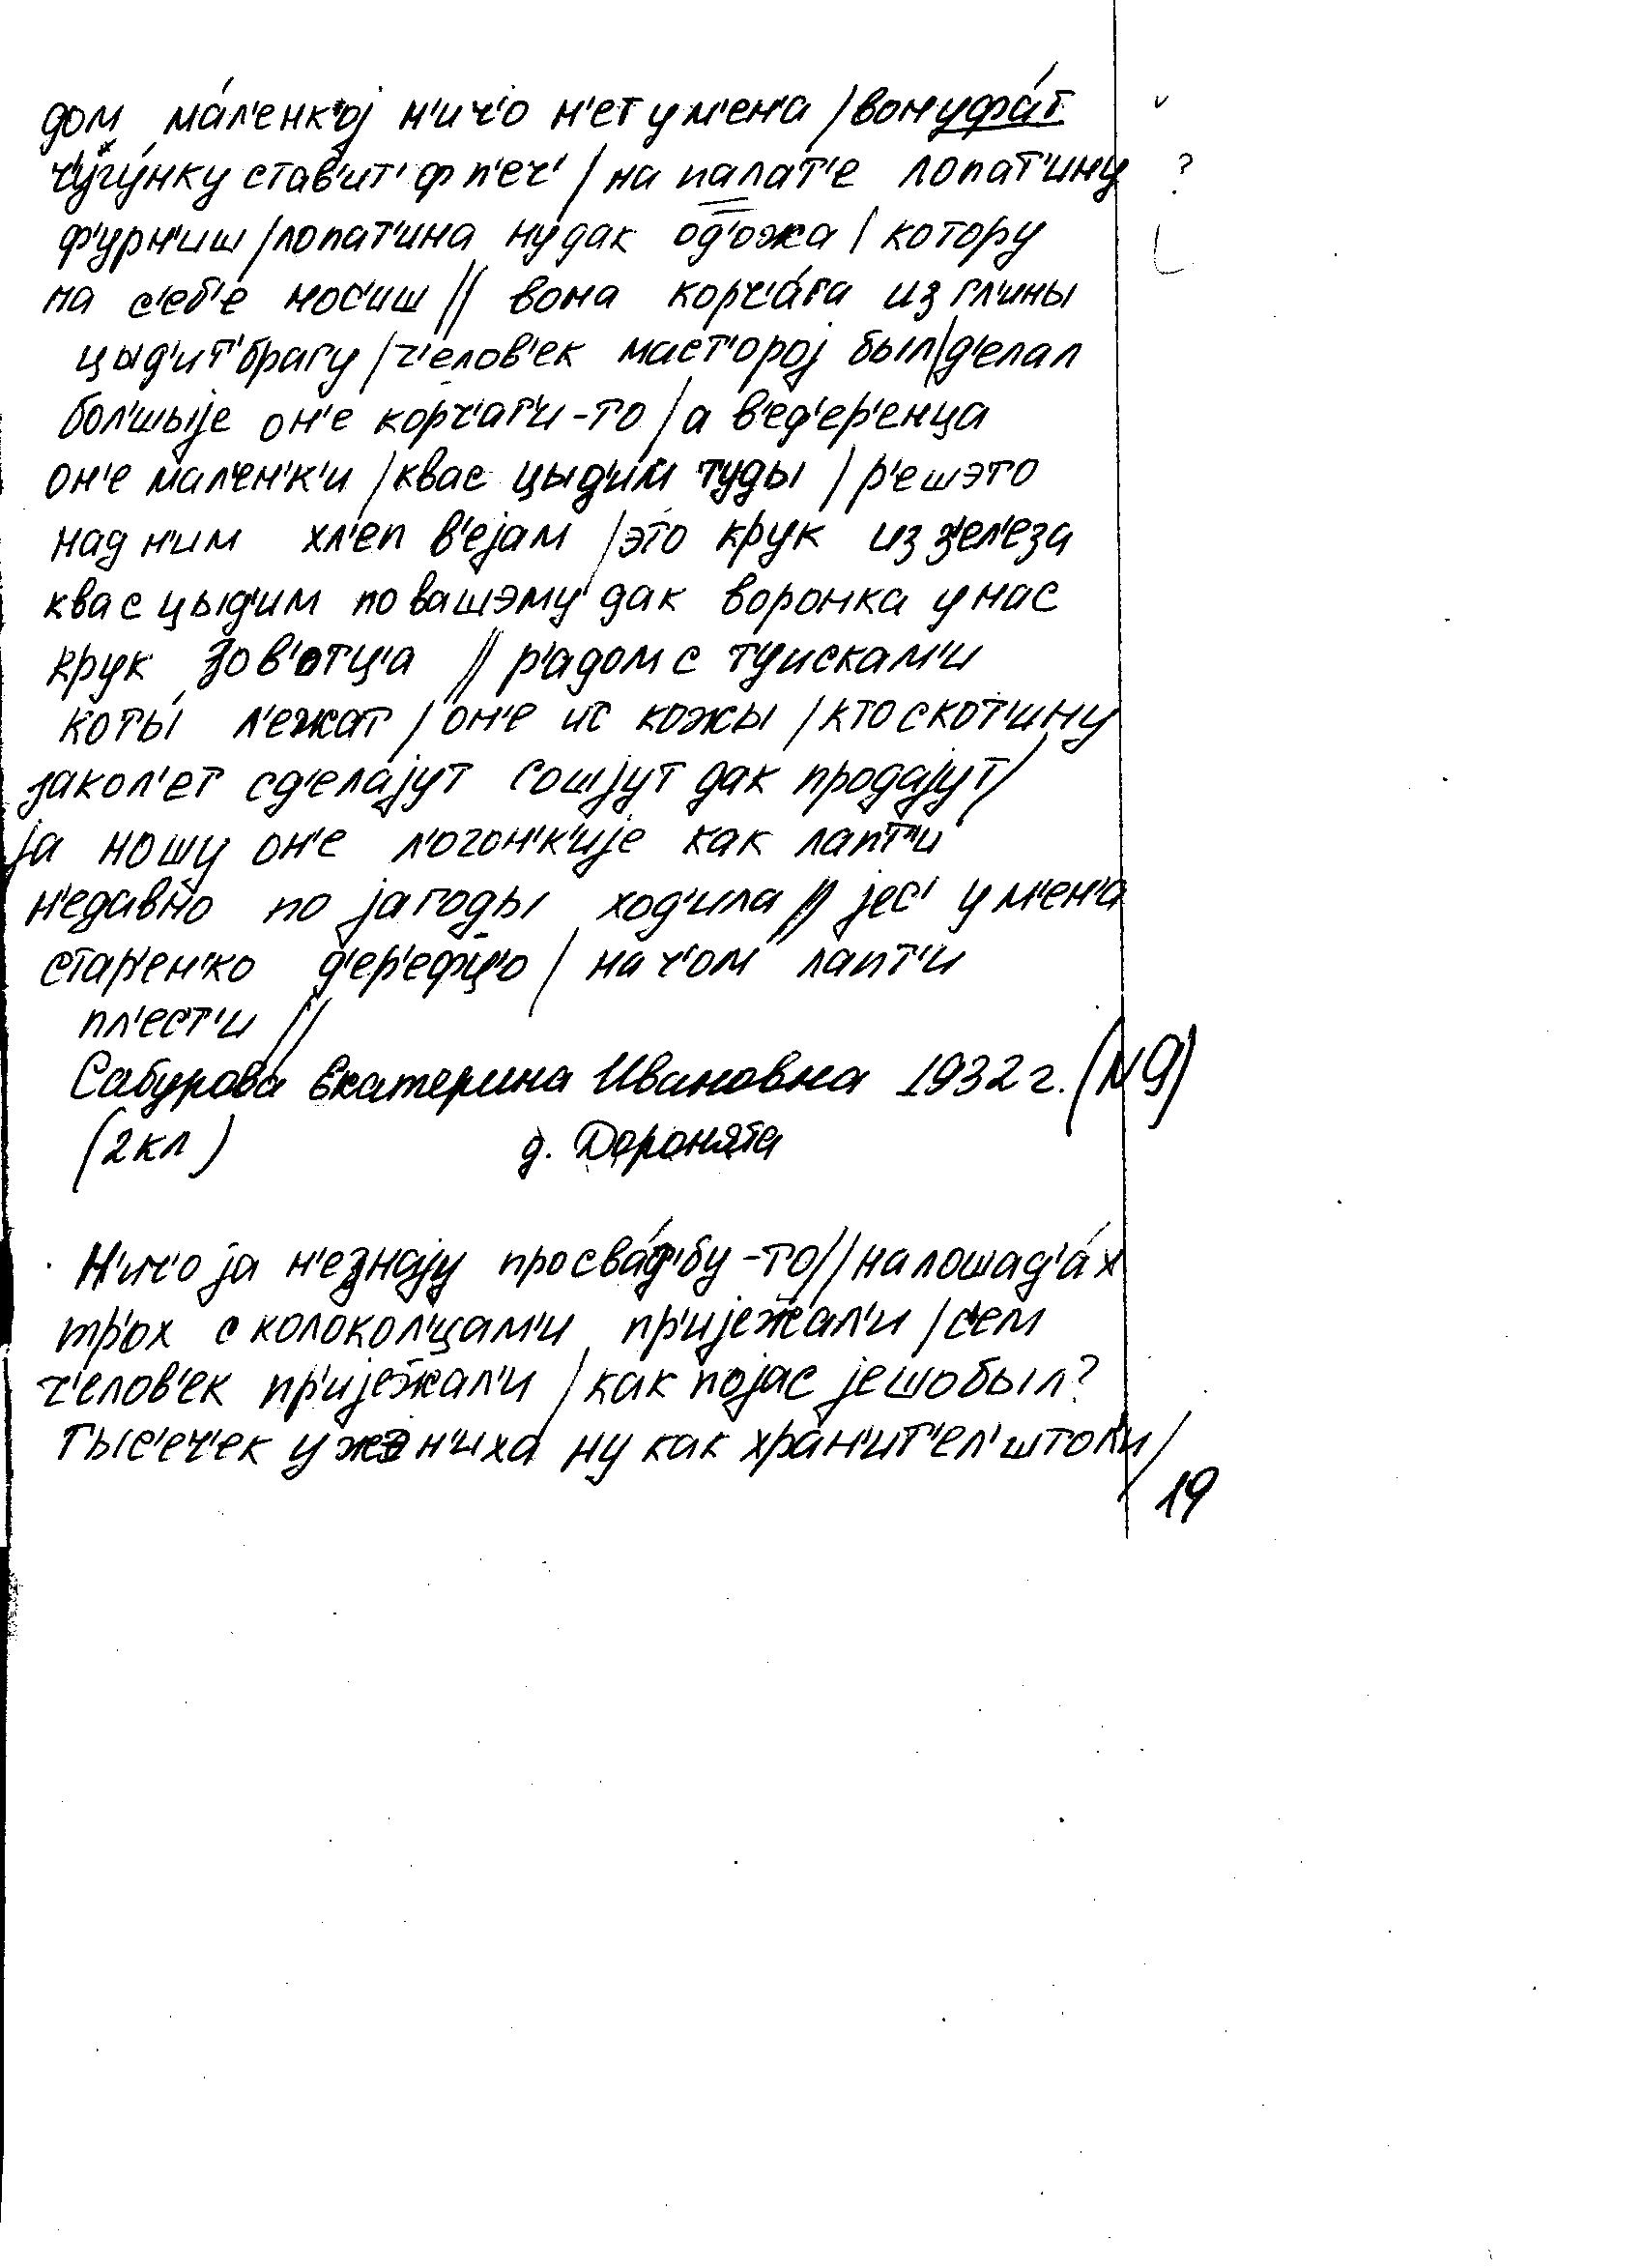 дом ма́л'енк'оj н'ич'о н'ет у м'ена / вон уфа́т ѵ
ч'угу́нку став'ит' ф п'еч' / на палат'е лопат'ину ?
ф'урн'иш / лопат'ина ну дак од'ожа / котору
на с'еб'е нос'иш // вона корч'а́га из гл'ины
цыд'ит' брагу / ч'елов'ек маст'ороj был / д'елал
бол'шыjе он'е корч'аг'и-то / а в'ед'ер'енца
он'е мал'ен'к'и / квас цыд'им туды / р'ешэто
над н'им хл'еп в'еjам / это крук из зел'еза
квас цыд'им по вашэму дак воронка у нас
крук зов'отц'а // р'адом с туискам'и
коты́ л'ежат / он'е ис кожы / кто скот'ину
закол'ет сд'елаjут сошjут дак продаjут /
jа ношу он'е л'огон'к'иjе как лапт'и
н'едавно по jагоды ход'ила // jес' у м'ен'а
стар'ен'ко д'ер'ефц'о / на ч'ом лапт'и
пл'ест'и //
Сабурова Екатерина Ивановна 1932 г. (N 9)
(2 кл) д. Доронята
Н'ич'о jа н'е знаjу про сва́д'бу-то // на лошад'а́х
тр'ох с колокол'цам'и пр'иjежал'и / с'ем
ч'елов'ек пр'иjежал'и / как поjас jешо был?
тыс'еч'ек у жэн'иха ну как хран'ит'ел' што л'и /
19